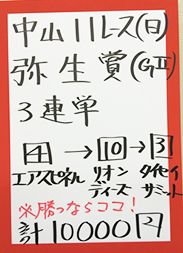 中山11レース(日)
弥生賞(GII)
3連単
4→10→3
エアスピネル リオン タイセイ
ディーズ サミット
※勝つならココ!
計10000円